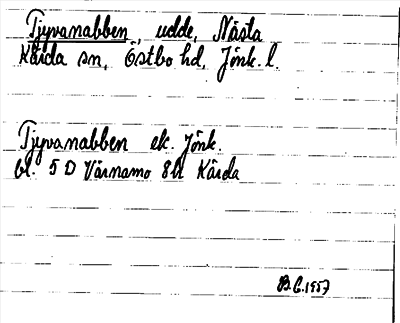 Tjyvanabben, udde, Nästa
Kärda sn, Östbo hd, Jönk. l.
Tjyvanabben ek. Jönk.
bl. 5 D Värnamo 8h Kärda
B.G. 1957